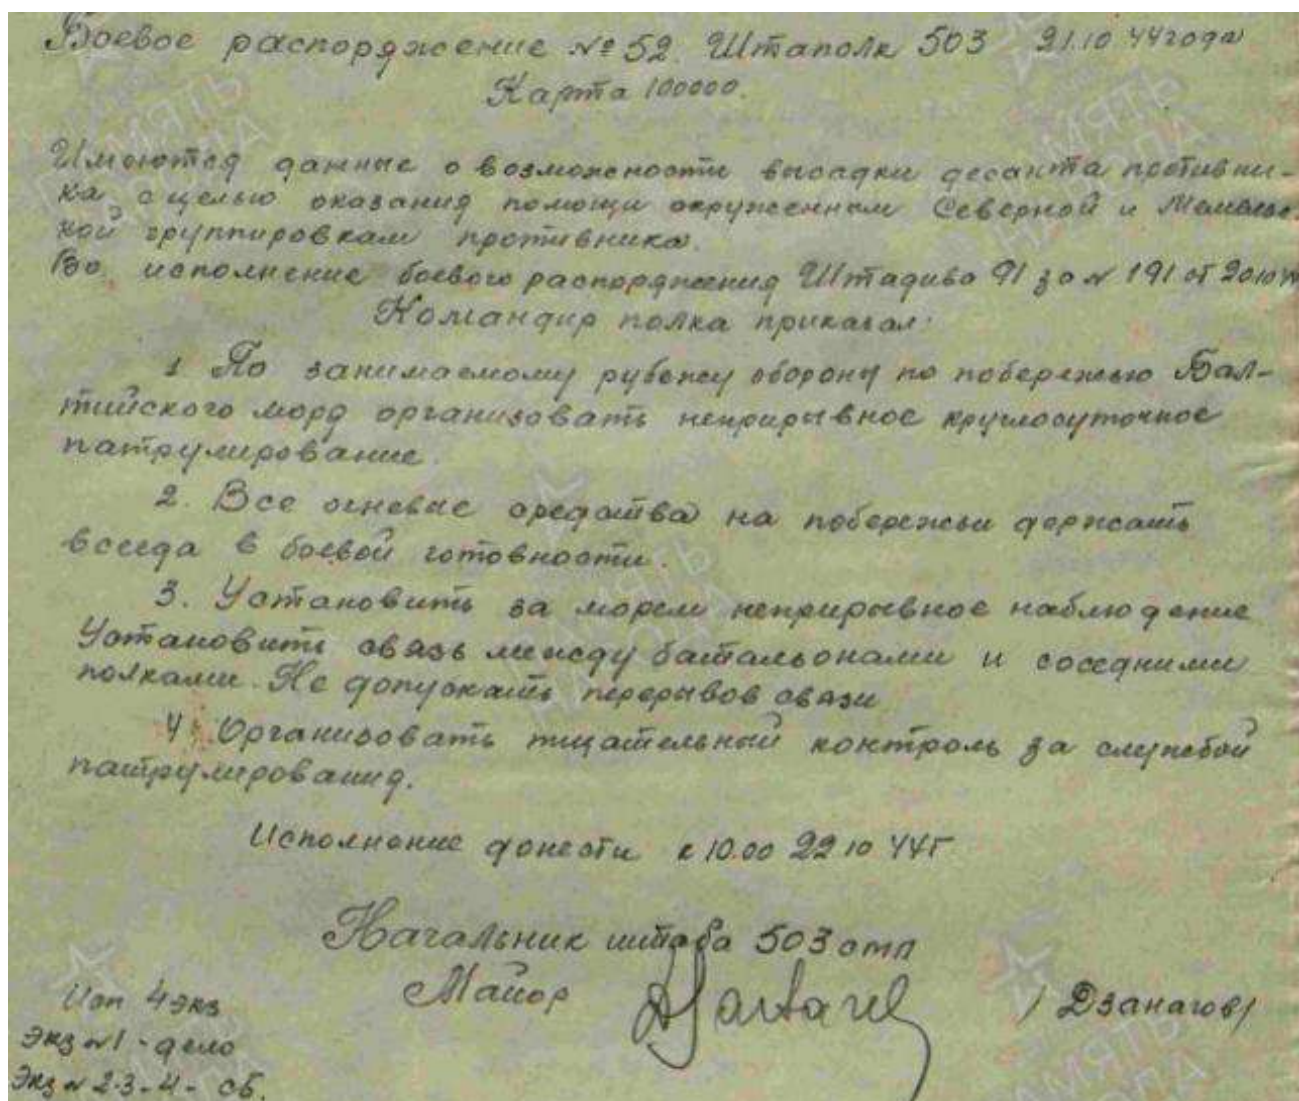 Боевое распоряжение № 52. Штаполк 503 21.10 44 года
Карта 100000.
Имеются данные о возможности высадки десанта противни-
ка с целью оказания помощи окруженным Северной и Мемельс-
кой группировкам противника.
Во исполнение боевого распоряжения Штадива 91 за № 191 от 20.10
Командир полка приказал:
1 По занимаемому рубежу обороны по побережью Бал-
тийского моря организовать неприрывное круглосуточное
патрулирование.
2. Все огневые средства на побережьи держать
всегда в боевой готовности.
3. Установить за морем неприрывное наблюдение
Установить связь между батальонами и соседними
полками. Не допускать перерывов связи
4. Организовать тщательный контроль за службой
патрулирования.
Исполнение донести к 10.00 22 10 44г
Начальник штаба 503 стп
Майор / Дзанагов /
Исп 4 экз
Экз № 1 - дело
Экз № 2-3-4 - сб.
ПАМЯТЬ
НАРОДА